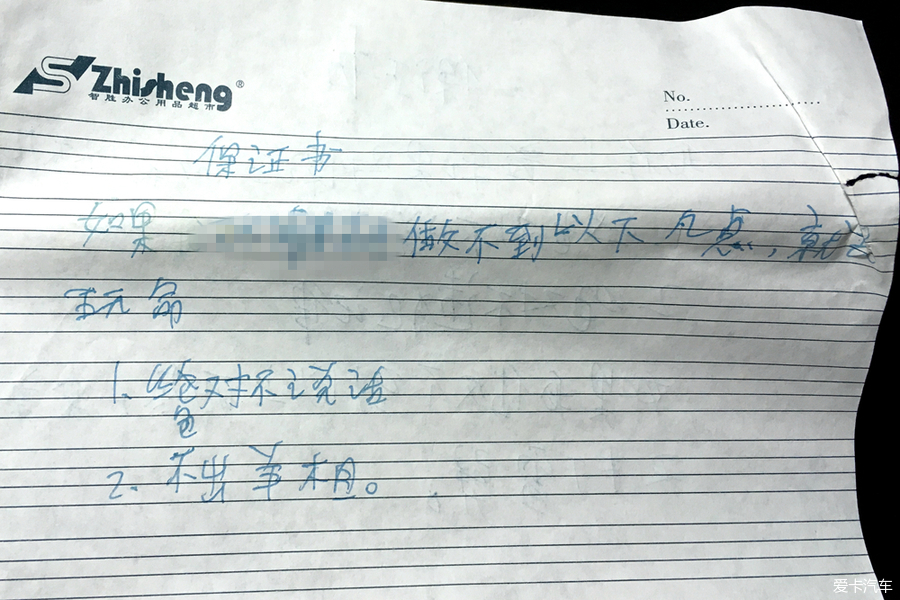 Zhisheng®
智胜办公用品超市
No.
Date.
保证书
如果 做不到以下几点，就会
玩命
1. 绝对不说话
2. 不出羊相。
爱卡汽车